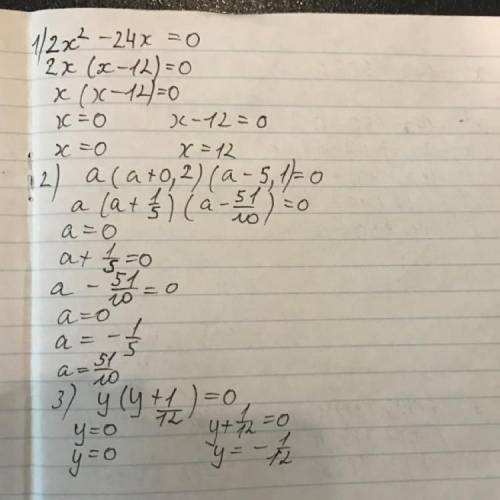 1) 2x² - 24x = 0
2x (x - 12) = 0
x (x - 12) = 0
x = 0 x - 12 = 0
x = 0 x = 12
2) a (a + 0,2) (a - 5,1) = 0
a (a + 1/5) (a - 51/10) = 0
a = 0
a + 1/5 = 0
a - 51/10 = 0
a = 0
a = - 1/5
a = 51/10
3) y (y + 1/12) = 0
y = 0 y + 1/12 = 0
y = 0 y = - 1/12